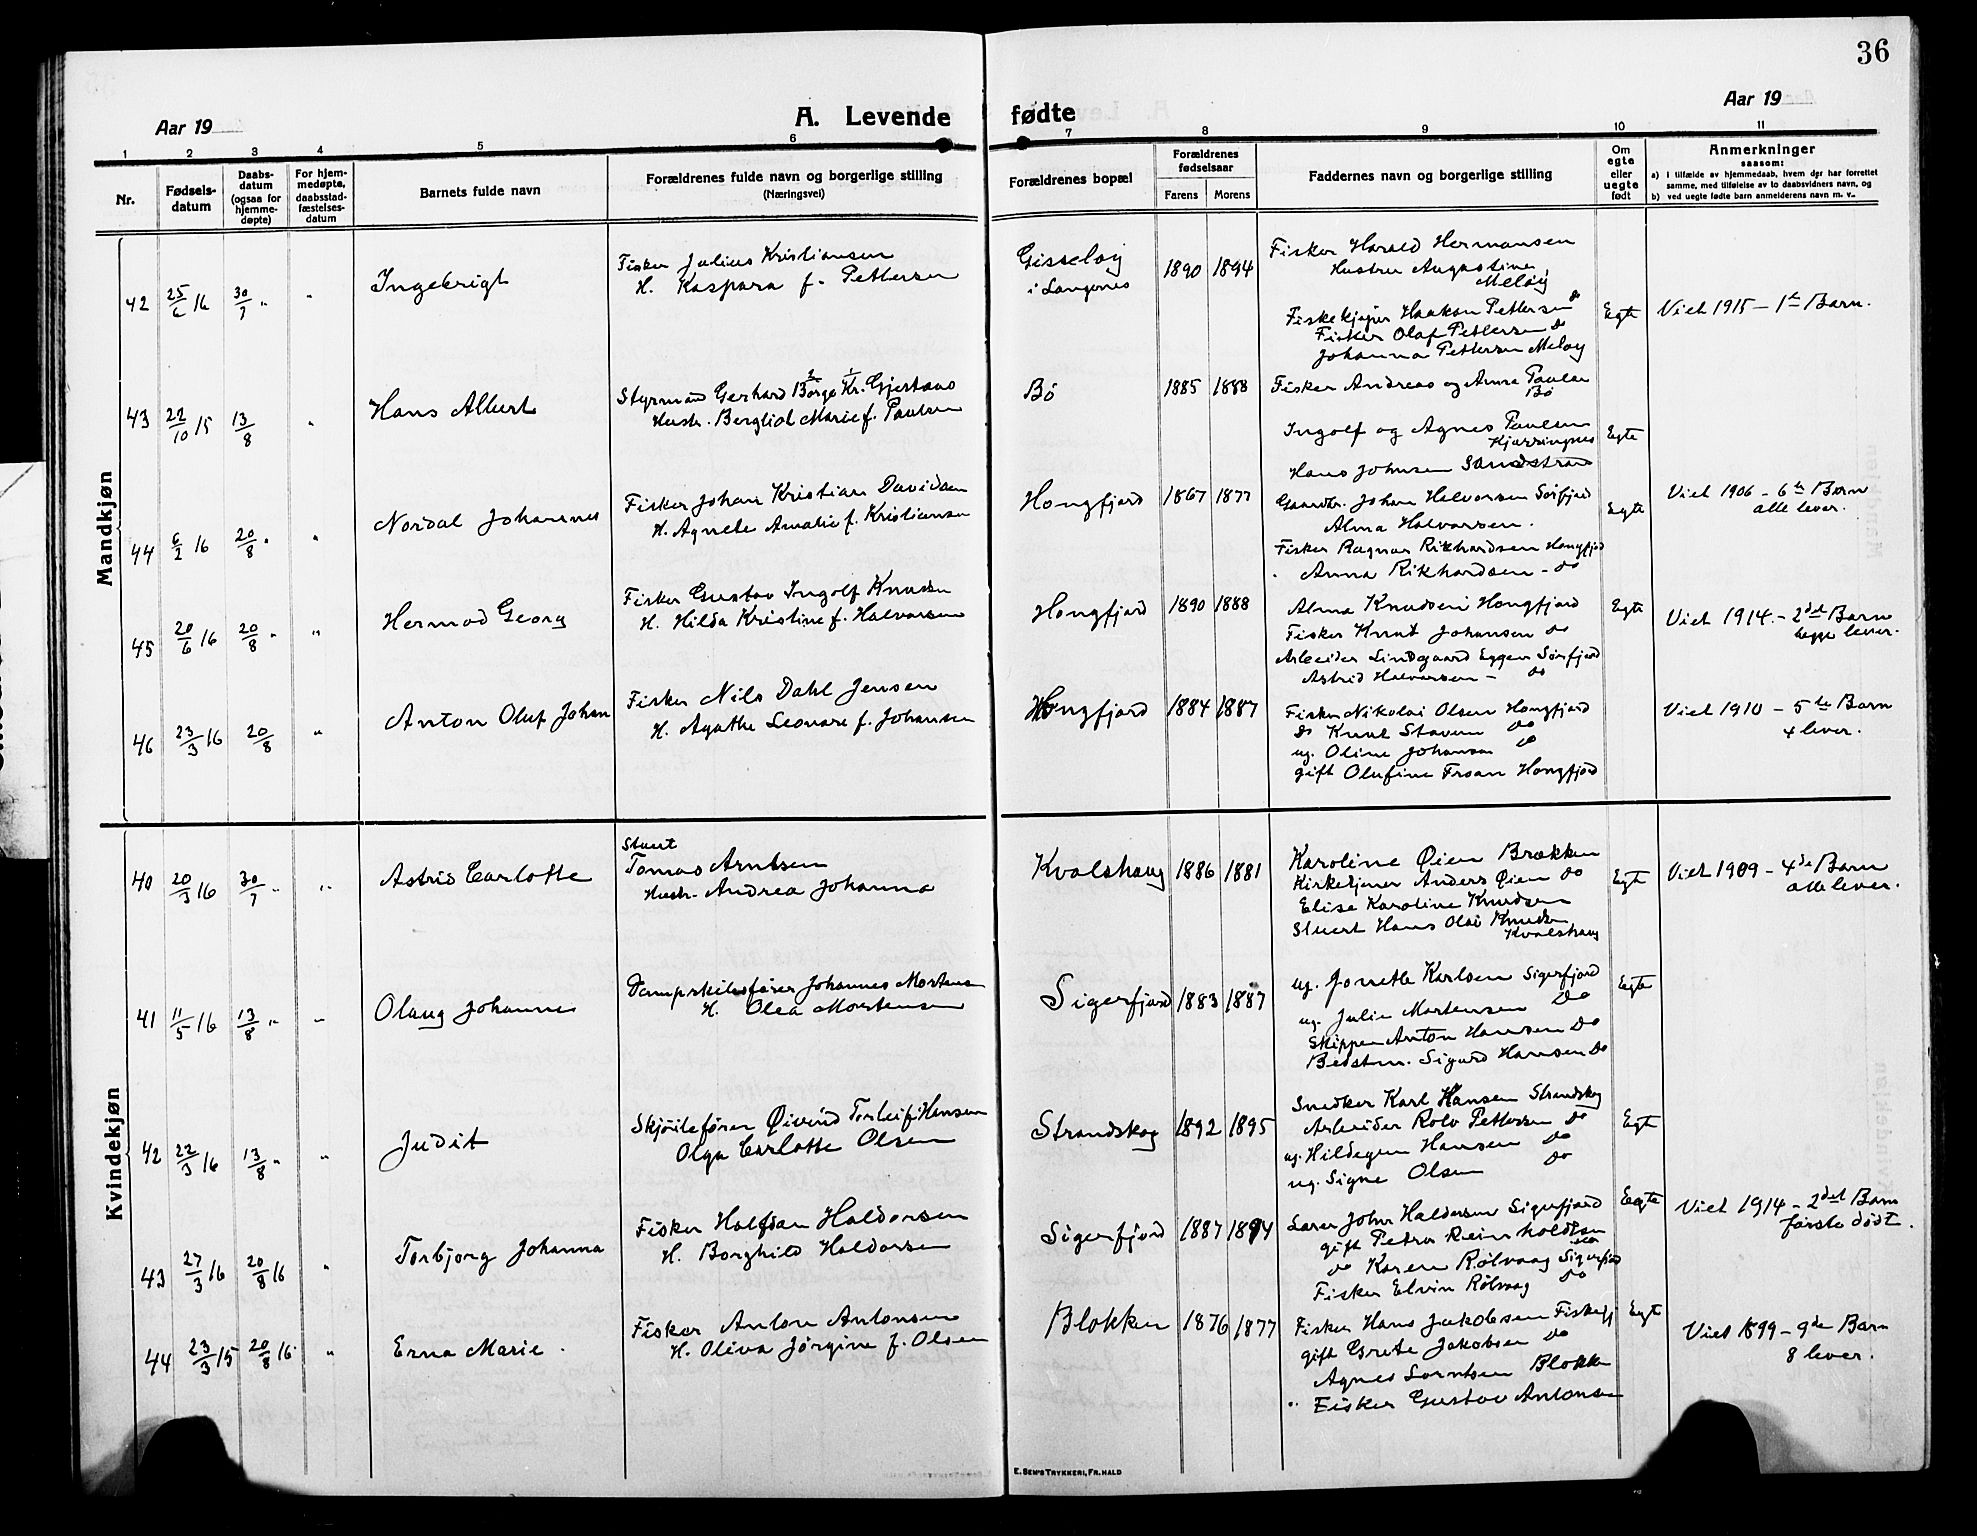 36
Aar 19
A. Levende fødte
Aar 19
1 2 3 4 5 6 7 8 9 10 11
Nr.
Fødsels-
datum
Daabs-
datum
(ogsaa for
hjemme-
døpte)
For hjem-
medøpte,
daabsstad-
fæstelses-
datum
Barnets fulde navn
Forældrenes fulde navn og borgerlige stilling
(Næringsvei)
Forældrenes bopæl
Forældrenes
fødselsaar
Farens Morens
Faddernes navn og borgerlige stilling
Om
egte
eller
uegte
født
Anmerkninger
saasom:
a) i tilfælde av hjemmedaab, hvem der har forrettet
samme, med tilføielse av to daabsvidners navn, og
b) ved uegte fødte barn anmelderens navn m. v..
Mandkjøn
42 25/6 16 30/7 " "
Ingebrigt
Fisker Julius Kristiansen
H. Kaspara f. Pettersen
Gisseløy
i Langenes
1890 1894
Fisker Harald Hermansen
Hustru Augustine,
Meløy
Fiskekjøper Haakon Pettersen do
Fisker Olaf Pettersen do
Johanna Pettersen Meløy
Egte
Viet 1915 - 1te Barn.
43 22/10 15 13/8 "
Hans Albert
Styrmand Gerhard Borge Kr. Gjertsens
Hustr. Bergliot Marie f. Paulsen
Bø
1885 1888
Fisker Andreas og Anna Paulsen
Bø
Ingolf og Agnes Paulsen
Kjærringnes
Hans Johnsen Sandstrand
Egte
44 6/2 16 20/8 " "
Nordal Johannes
Fisker Johan Kristian Davidsen
H. Agnete Amalie f. Kristiansen
Hongfjord
1867 1877
Gaardbr. Johan Halvorsen Sørfjord
Alma Halvorsen.
Fisker Ragnar Rikhardsen Hongfjord
" Anna Rikhardsen - do
Egte
Viet 1906 - 6te Barn
alle lever.
45 20/6 16 20/8 " "
Hermod Georg
Fisker Gustav Ingolf Knudsen
H. Hilda Kristine f. Halvorsen
Hongfjord
1890 1888
Alma Knudsen Hongfjord
Fisker Knut Johansen do
Arbeider Lindgaard Eggen Sørfjord
Astrid Halvorsen - do
Egte
Viet 1914. - 2det Barn
begge lever.
46 23/3 16 20/8 "
Anton Oluf Johan
Fisker Nils Dahl Jensen
H. Agathe Leonare f. Johansen
Hongfjord
1884 1887
Fisker Nikolai Olsen Hongfjord
do Knut Stavem do
ug. Oline Johansen do
gift Olufine Hongfjord
Viet 1910 - 5te Barn
4 lever.
Kvindekjøn
40 20/3 16 30/7 " "
Astrid Carlotte
Stuert
Tomas Arntsen
Hustr. Andrea Johanna
Kvalshaug
1886 1881
Karoline Øien Brækken
Kirketjener Anders Øien do
Elise Karoline Knudsen
Stuert Hans Olai Knudsen
Kvalshaug
Egte
Viet 1909 - 4de Barn
alle lever.
41 11/5 16 13/8 " "
Olaug Johanne
Dampskibsfører Johannes Mortensen
H. Olea Mortensen
Sigerfjord
1883 1887
ug. Jonette Karlsen Sigerfjord
ug. Julie Mortensen do
Skipper Anton Hansen do
Bedstm. Sigurd Hansen do
Egte
42 22/3 16 13/8 " "
Judit
Skjøitefører Øivind Torleif Hansen
Olga Carlotte Olsen
Strandskog
1892 1895
Snedker Karl Hansen Strandskog
Arbeider Rolv Pettersen do
ug. Hildegun Hansen do
ug. Signe Olsen do
Egte
43 27/3 16 20/8 16 "
Torbjørg Johanna
Fisker Halfdan Haldorsen
H. Borghild Haldorsen
Sigerfjord
1887 1894
Lærer John Haldorsen Sigerfjord
gift Petra Reinholdtsen
do Karen Rølvaag Sigerfjord
Fisker Elvin Rølvaag do
Egte
Viet 1914 - 2det Barn
første dødt.
44 23/3 15 20/8 16. "
Erna Marie.
Fisker Anton Antonsen
H. Oliva Jørgine f. Olsen
Blokken
1876 1877
Fisker Hans Jakobsen Fiskefj
gift Grete Jakobsen do
Agnes Lorntsen Blokken
" Fisker Gustav Antonsen
Egte
Viet 1899 - 9de Barn
8 lever.
E. SEM'S TRYKKERI, FR.HALD